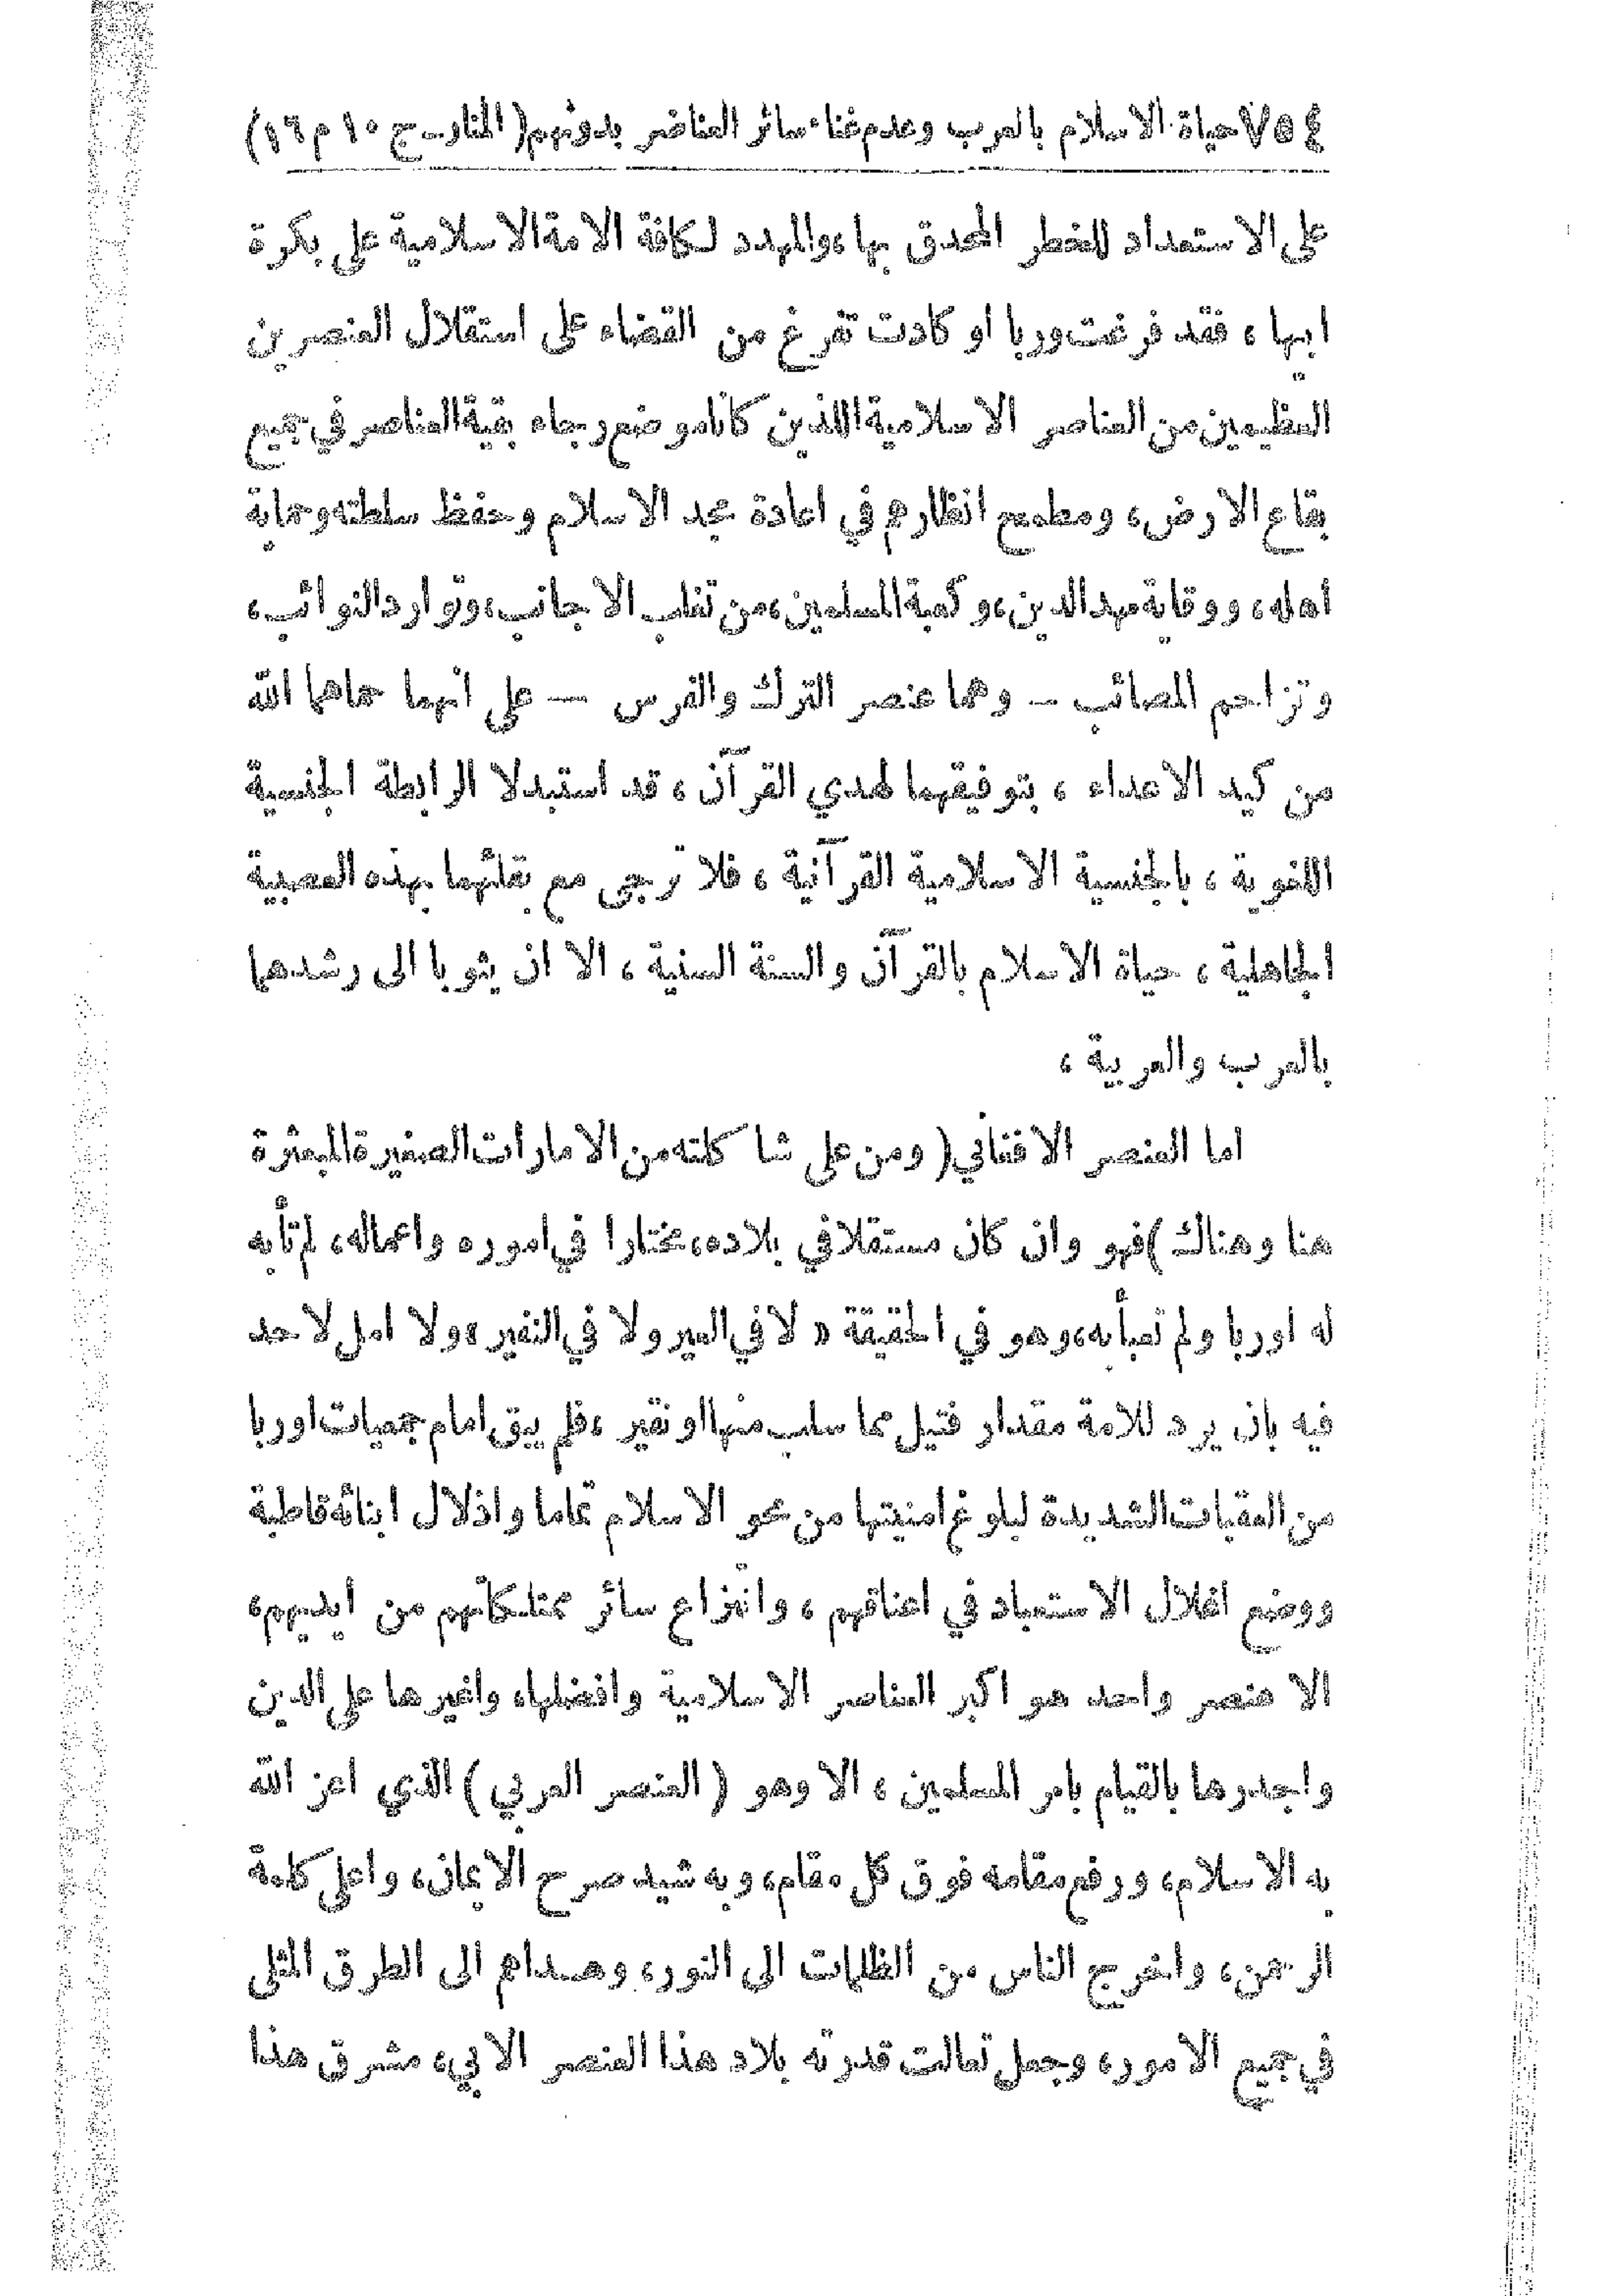 ٧٥٤ حياة الاسلام بالعرب وعدم غناء سائر العناصر بدونهم (المنار ـ ج ١٠ م ١٦)
على الاستعداد للخطر المحدق بها، والمهدد لكافة الامة الاسلامية على بكرة
ابيها، فقد فرغت وربا او كادت تفرغ من القضاء على استقلال العنصرين
العظيمين من العناصر الاسلامية اللذين كانا موضع رجاء بقية العناصر في جميع
بقاع الارض، ومطمح انظارهم في اعادة مجد الاسلام وحفظ سلطته وحماية
اهله، ووقاية مهد الدين، وكعبة المسلمين، من تغلب الاجانب، وتوارد النوائب،
وتزاحم المصائب ـ وهما عنصر الترك والفرس — على انهما حماهما الله
من كيد الاعداء، بتوفيقهما لهدي القرآن، قد استبدلا الرابطة الجنسية
اللغوية، بالجنسية الاسلامية القرآنية، فلا ترجى مع بقائهما بهذه العصبية
الجاهلية، حياة الاسلام بالقرآن والسنة السنية، الا ان يثوبا الى رشدهما
بالعرب والعربية،
اما العنصر الافغاني (ومن على شاكلته من الامارات الصغيرة المبعثرة
هنا وهناك) فهو وان كان مستقلا في بلاده، مختارا في اموره واعماله، لم تأبه
له اوربا ولم تعبأ به، وهو في الحقيقة « لا في العير ولا في النفير » ولا امل لاحد
فيه بان يرد للامة مقدار فتيل مما سلب منها او نقير، فلم يبق امام جمعيات اوربا
من العقبات الشديدة لبلوغ امنيتها من محو الاسلام تماما واذلال ابنائه قاطبة
ووضع اغلال الاستعباد في اعناقهم، وانتزاع سائر ممتلكاتهم من ايديهم،
الا عنصر واحد هو اكبر العناصر الاسلامية وافضلها، واغيرها على الدين
واجدرها بالقيام بامر المسلمين، الا وهو (العنصر العربي) الذي اعز الله
به الاسلام، ورفع مقامه فوق كل مقام، وبه شيد صرح الايمان، واعلى كلمة
الرحمن، واخرج الناس من الظلمات الى النور، وهداهم الى الطرق المثلى
في جميع الامور، وجعل تعالت قدرته بلاد هذا العنصر الابي، مشرق هذا